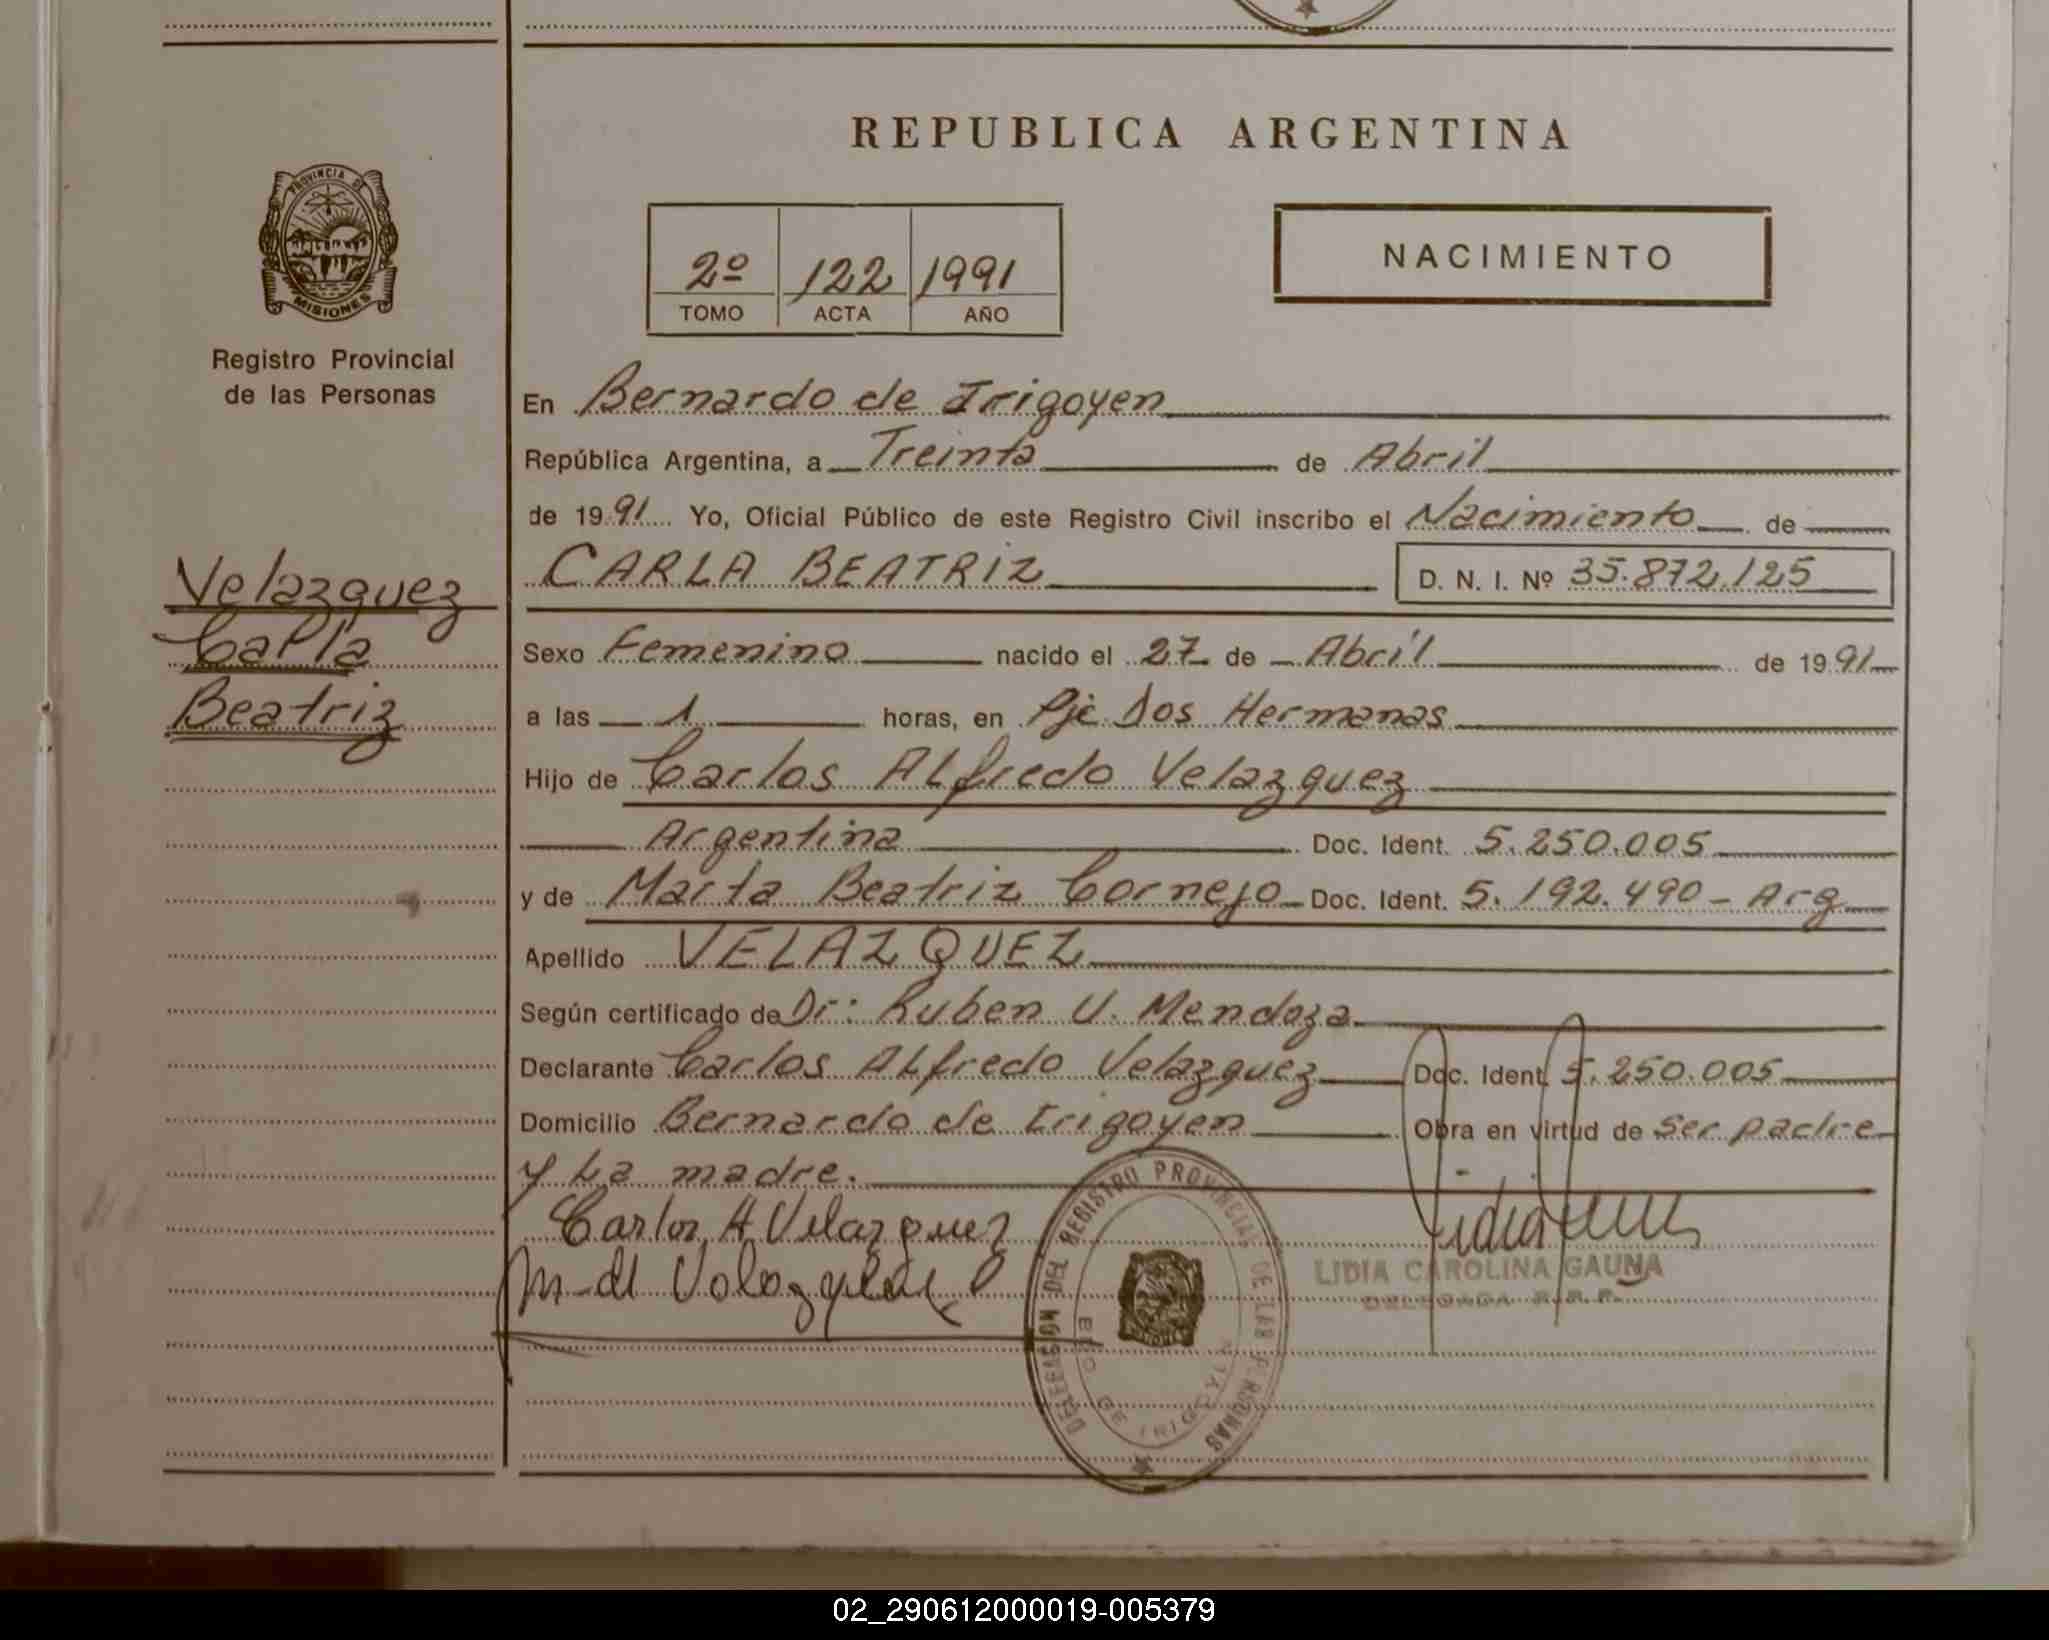 REPUBLICA ARGENTINA
PROVINCIA DE
MISIONES
Registro Provincial
de las Personas
2º 122 1991
TOMO ACTA AÑO
NACIMIENTO
Velazquez
Carla
Beatriz
En Bernardo de Irigoyen
República Argentina, a Treinta de Abril
de 1991 Yo, Oficial Público de este Registro Civil inscribo el Nacimiento de
CARLA BEATRIZ D. N. I. Nº 35.872.125
Sexo Femenino nacido el 27 de Abril de 1991
a las 1 horas, en Pje Dos Hermanas
Hijo de Carlos ALfredo Velazquez
Argentina Doc. Ident. 5.250.005
y de Marta Beatriz Cornejo Doc. Ident. 5.192.490 - Arg
Apellido VELAZQUEZ
Según certificado de Dr: Ruben U. Mendoza
Declarante Carlos ALfredo Velazquez Doc. Ident. 5.250.005
Domicilio Bernardo de Irigoyen Obra en virtud de ser padre
y La madre.
Carlos A Velazquez
DELEGACION DEL REGISTRO PROVINCIAL DE LAS PERSONAS
BDO DE IRIGOYEN
LIDIA CAROLINA GAUNA
DELEGADA R.P.P.
02_290612000019-005379